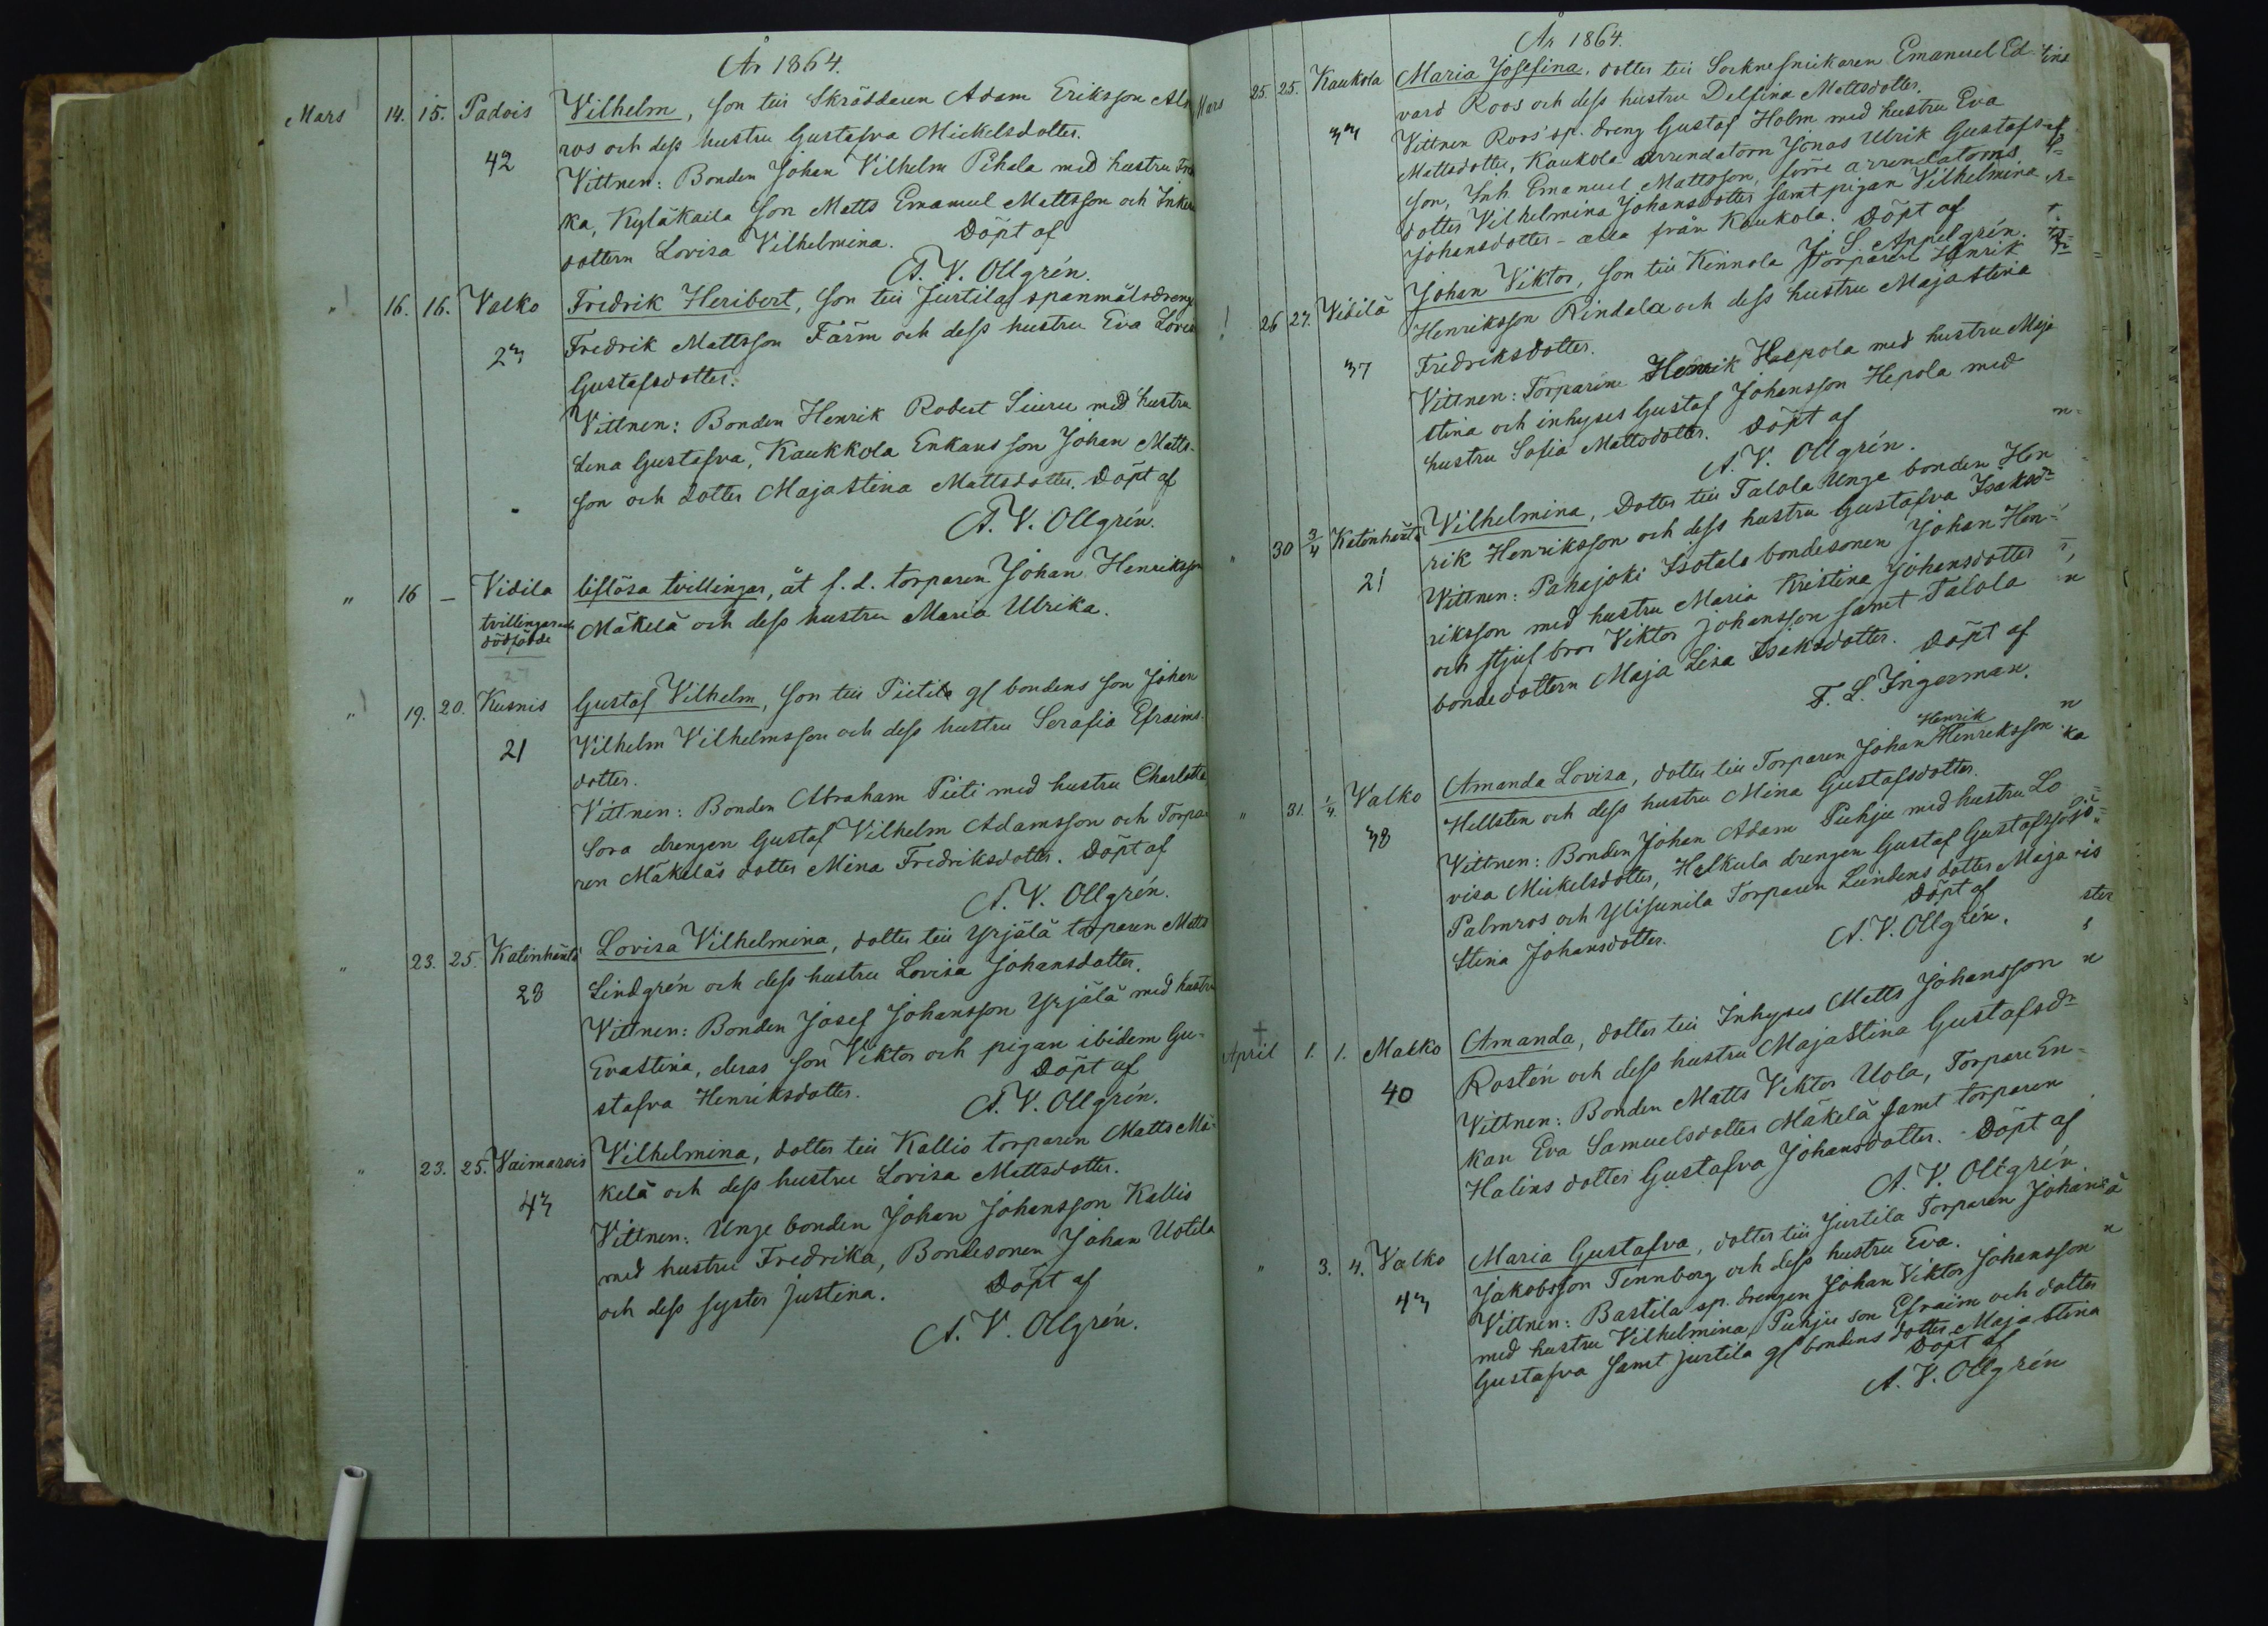 År 1864.
Mars 14. 15. Padois Vilhelm, son till Skräddaren Adam Eriksson Alm
ros och dess hustru Gustafva Mickelsdotter.
42 Vittnen: Bonden Johan Vilhelm Pihala med hustru
ka, Kyläkaila son Matts Emanuel Mattsson och
dottern Lovisa Vilhelmina. Döpt af
A. V. Ollgrén.
" 16. 16. Valko Fredrik Heribert, son till Jurtila spanmålsdreng
23 Fredrik Mattsson Färm och dess hustru Eva Lovisa
Gustafsdotter.
Vittnen: Bonden Henrik Robert Siuru med hustru
Lena Gustafva, Kaukkola Enkans son Johan Matts-
son och dotter Maja Stina Mattsdotter. Döpt af
A. V. Ollgrén.
" 16 – Vidila liflösa tvillingar, åt f. d. torparen Johan Henriksson
tvillingar
dödfödde Mäkelä och dess hustru Maria Ulrika.
27
" 19. 20. Kusnis Gustaf Vilhelm, son till Pietilä gl bondens son Johan
21 Vilhelm Vilhelmsson och dess hustru Serafia Efraims-
dotter.
Vittnen: Bonden Abraham Pieti med hustru Charlotta,
Sora drengen Gustaf Vilhelm Adamsson och Torpa-
ren Mäkeläs dotter Mina Fredriksdotter. Döpt af
A. V. Ollgrén.
" 23. 25. Katinhäntä Lovisa Vilhelmina, dotter till Yrjälä torparen Matts
28 Lindgrén och dess hustru Lovisa Johansdotter.
Vittnen: Bonden Josef Johansson Yrjälä med hustru
Evastina, deras son Viktor och pigan ibidem Gu-
stafva Henriksdotter. Döpt af
A. V. Ollgrén.
" 23. 25. Vaimarois Vilhelmina, dotter till Kallio torparen Matts Mä-
43 kelä och dess hustru Lovisa Mattsdotter.
Vittnen: Unge bonden Johan Johansson Kallio
med hustru Fredrika, Bondesonen Johan Uotila
och dess syster Justina. Döpt af
A. V. Ollgrén.
År 1864.
Mars 25. 25. Kaukola Maria Josefina, dotter till Socknesnickaren Emanuel Ed-
vard Roos och dess hustru Delfina Mattsdotter.
33 Vittnen Roos' sp. dreng Gustaf Holm med hustru Eva
Mattsdotter, Kaukola arrendatorn Jonas Ulrik Gustafs-
son, Inh. Emanuel Mattsson, förre arrendatorns
dotter Vilhelmina Johansdotter samt pigan Vilhelmina
Johansdotter – alla från Kaukola. Döpt af
J. S. Appelgrén.
! 26 27. Vidilä Johan Viktor, son till Kinnola Torparen Henrik
Henriksson Rindala och dess hustru Maja Stina
37 Fredriksdotter.
Vittnen: Torparene Henrik Haapola med hustru Maja
Stina och inhyses Gustaf Johansson Hepola med
hustru Sofia Mattsdotter. Döpt af
A. V. Ollgrén.
" 30 3/4 Katinhäntä Vilhelmina, Dotter till Talola Unge bonden Hen
rik Henriksson och dess hustru Gustafva Isaksdr
21 Vittnen: Pahajoki Isotalo bondesonen Johan Hen-
riksson med hustru Maria Kristina Johansdotter
och stjuf bror Viktor Johansson samt Talola
bondedottern Maja Lisa Isaksdotter. Döpt af
F. L. Ingerman.
Henrik
" 31. 1/4. Valko Amanda Lovisa, dotter till Torparen Johan Henriksson
Hellsten och dess hustru Mina Gustafsdotter.
38 Vittnen: Bonden Johan Adam Puhju med hustru Lo
visa Mickelsdotter, Halkula drengen Gustaf Gustafsson
Palmros och Ylisunila Torparen Lundens dotter Maja
Stina Johansdotter. Döpt af
A. V. Ollgrén.
+
April 1. 1. Malko Amanda, dotter till Inhyses Matts Johansson
40 Rostén och dess hustru Maja Stina Gustafsdr
Vittnen: Bonden Matts Viktor Uola, Torpare En-
kan Eva Samuelsdotter Mäkelä samt torparen
Halins dotter Gustafva Johansdotter. Döpt af
A. V. Ollgrén.
" 3. 4. Valko Maria Gustafva, dotter till Jurtila Torparen Johan
43 Jakobsson Tennberg och dess hustru Eva.
Vittnen: Bastila sp. drengen Johan Viktor Johansson
med hustru Vilhelmina, Puhju son Efraim och dotter
Gustafva samt Jurtila gl bondens dotter Maja Stina
Döpt af
A. V. Ollgrén